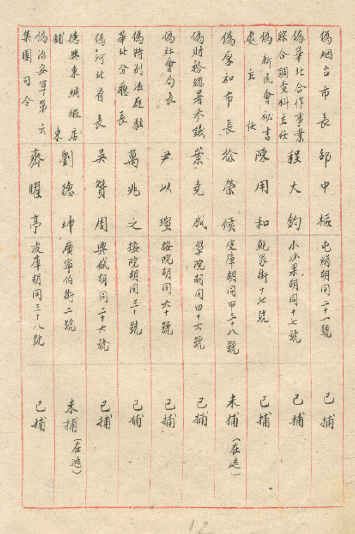 偽烟台市長 邵中樞 屯絹胡同二十一號 已捕
偽華北合作事業綜合調査科主任 程大鈞 小水果胡同十七號 已捕
偽新民會秘書處主任 陳用和 乾家街十七號 已捕
偽厚和市長 徐榮侯 皮庫胡同甲三十八號 未捕(在逃)
偽財務總署參議 葉堯成 學院胡同甲十六號 已捕
偽社會局長 尹以瑄 按院胡同六十號 已捕
偽特別法庭駐華北分庭長 萬兆之 按院胡同三十號 已捕
偽河北省長 吳贊周 興盛胡同二十六號 已捕
德興東綢緞店舖東 劉德坤 廣寧伯街二號 未捕(在逃)
偽治安軍第六集團司令 齊燮亭 皮庫胡同三十八號 已捕
12